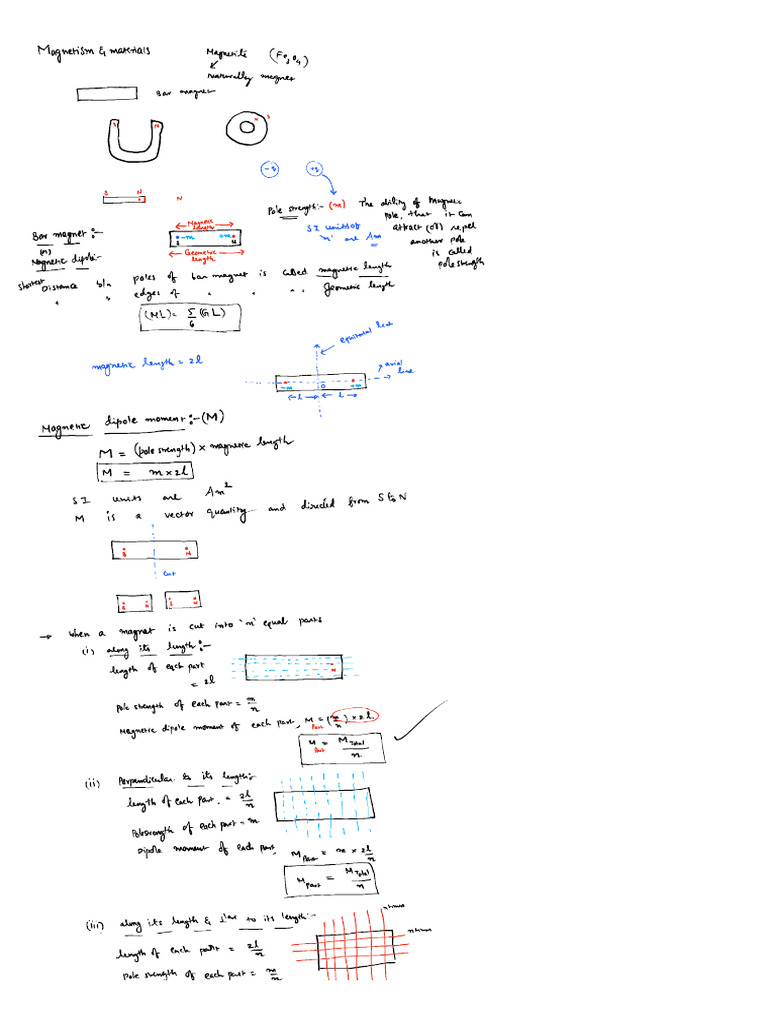 Magnetism & materials
Magnetite (Fe3O4)
Naturally magnet
Bar magnet
S N
N S
-q +q
S N
N
Pole strength:- (m) The ability of Magnetic
pole, that it can
attract (or) repel
another pole
is called
pole strength
SI units of
'm' are Am
Bar magnet :-
(or)
Magnetic dipole:-
Magnetic
length
-m +m
S N
Geometric
length
shortest Distance b/n poles of bar magnet is called magnetic length
" " edges of " " " " Geometric length
(ML) = 5/6 (GL)
magnetic length = 2l
equitorial line
axial
line
-m O +m
l l
Magnetic dipole moment :- (M)
M = (pole strength) × magnetic length
M = m × 2l
SI units are Am²
M is a vector quantity and directed from S to N
S N
cut
S N S N
→ When a magnet is cut into 'n' equal parts
(i) along its length :-
length of each part
= 2l
N
Pole strength of each part = m/n
Magnetic dipole moment of each part, M Part = (m/n) × 2l.
M Part = M Total/n
(ii) Perpendicular to its length:-
length of each part. = 2l/n
Polestrength of each part = m
Dipole moment of each part, M Part = m × 2l/n
M Part = M Total/n
(iii) along its length & ⊥lar to its length:-
n times
n times
length of each part = 2l/n
Pole strength of each part = m/n